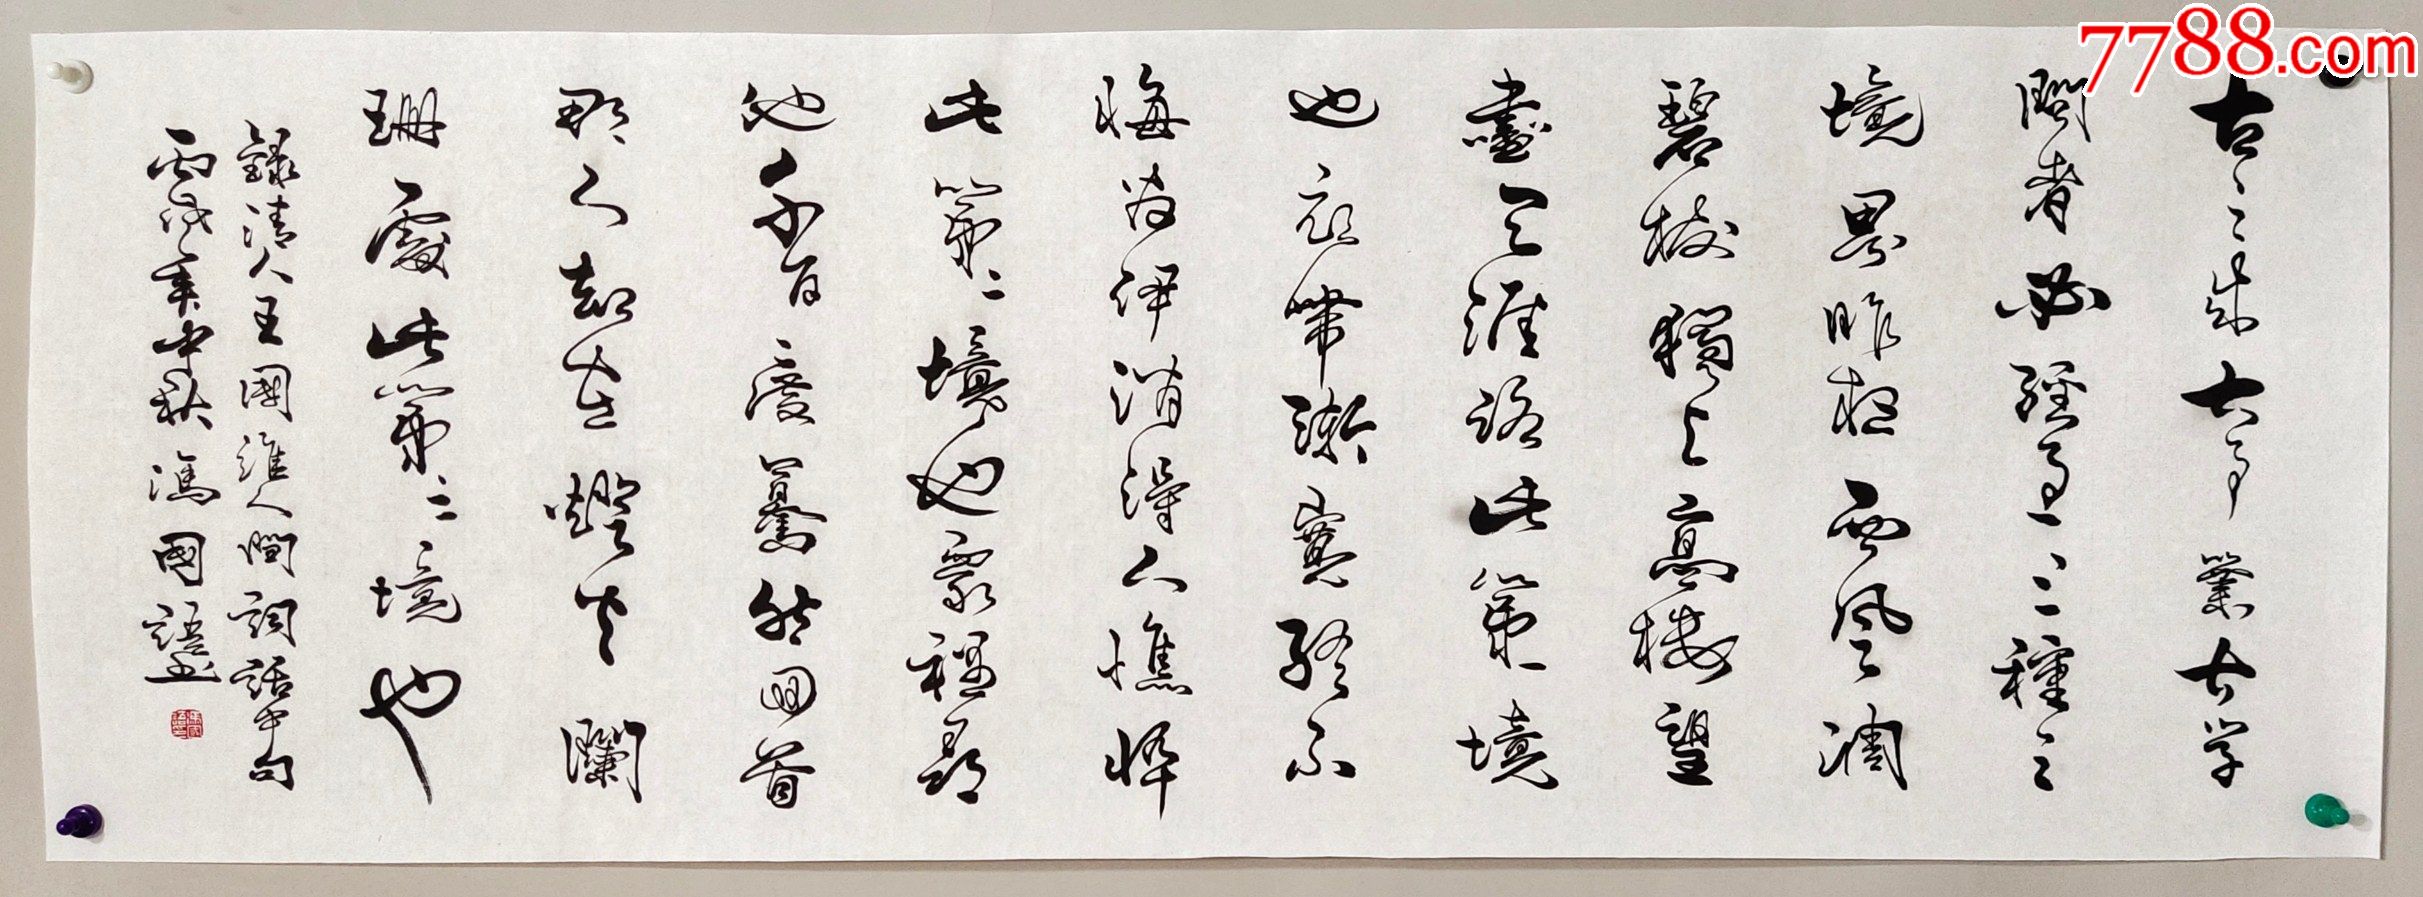 7788.com
古之成大事業大学
問者必經過三種之
境界昨夜西風凋
碧樹獨上高樓望
盡天涯路此第一境
也衣帶漸寬終不
悔為伊消得人憔悴
此第二境也眾裡尋
他千百度驀然回首
那人却在燈火闌
珊處此第三境也
錄清人王國維人間詞話中句
丙戌年中秋馮國語書